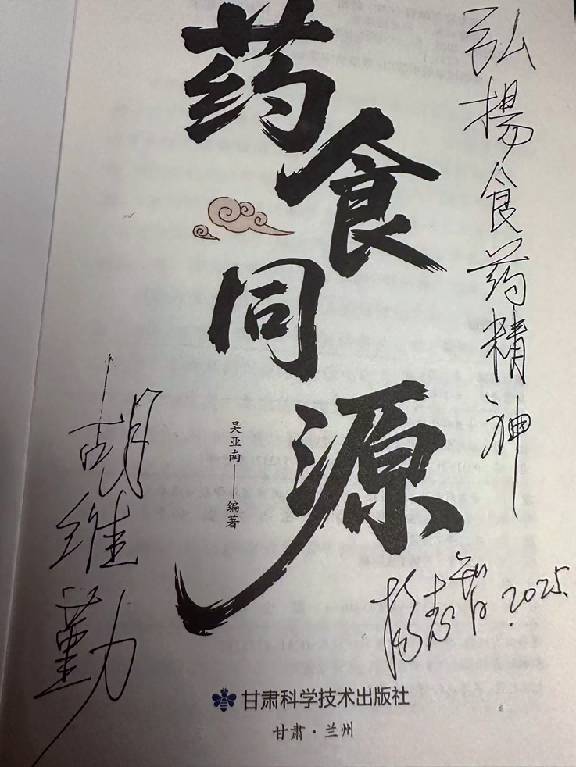 药食同源
吴亚南——编著
弘揚食药精神
胡维勤
杨志智 2025
甘肃科学技术出版社
甘肃·兰州